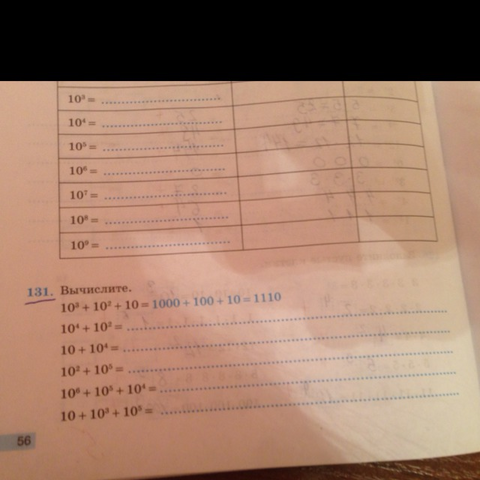 10³ =
10⁴ =
10⁵ =
10⁶ =
10⁷ =
10⁸ =
10⁹ =
131. Вычислите.
10³ + 10² + 10 = 1000 + 100 + 10 = 1110
10⁴ + 10² =
10 + 10⁴ =
10² + 10⁵ =
10⁶ + 10⁵ + 10⁴ =
10 + 10³ + 10⁵ =
56